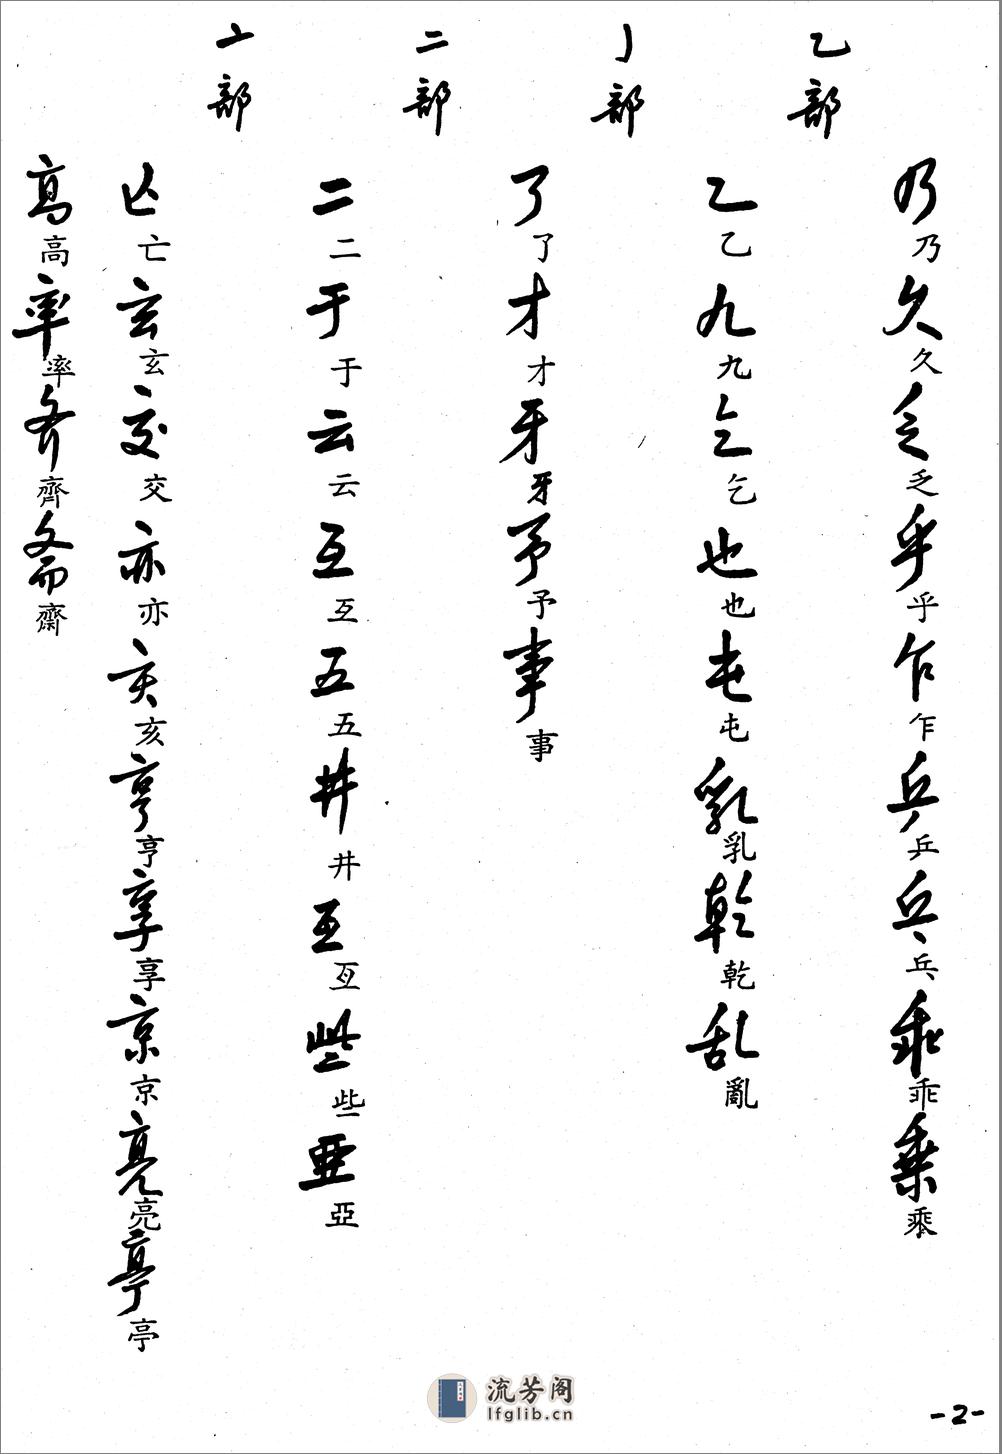 乃乃久久乏乏乎乎乍乍乒乒乓乓乖乖乘乘
乙部
乙乙九九乞乞也也屯屯乳乳乾乾乱亂
亅部
了了才才牙牙予予事事
二部
二二于于云云互互五五井井亙亙些些亞亞
亠部
亡亡玄玄交交亦亦亥亥亨亨享享京京亮亮亭亭
高高率率齐齊斋齋
流芳阁
lfglib.cn
-2-